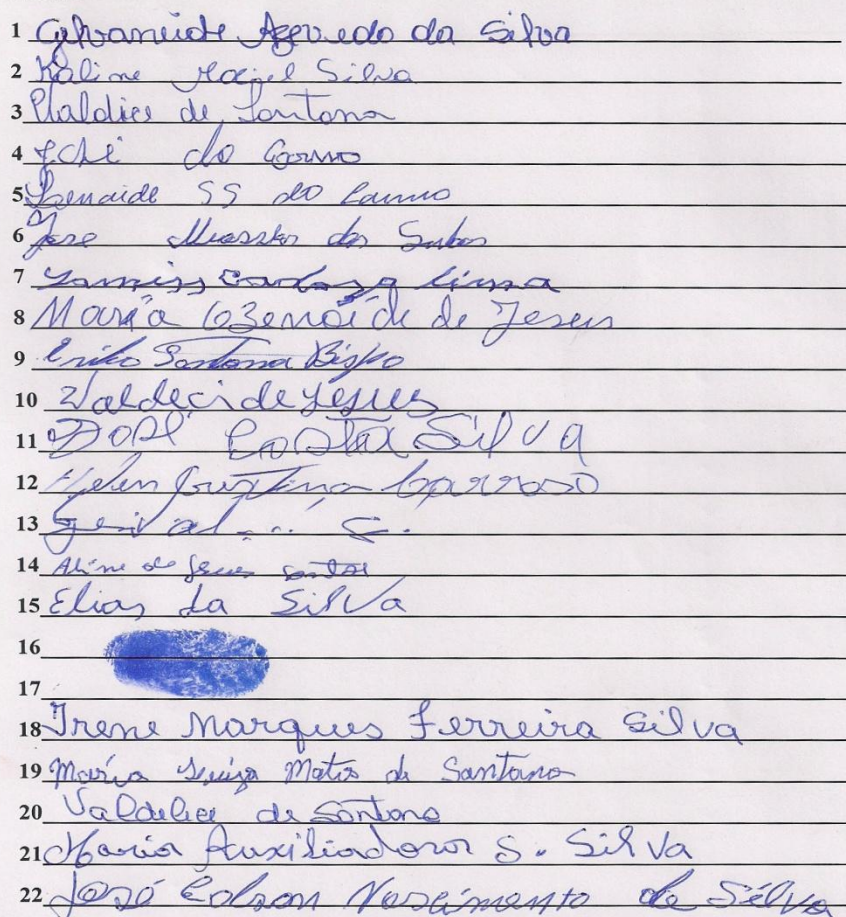 1 Gilvaneide Azevedo da Silva
2 Kaline Maciel Silva
3 de Santana
4 do Carmo
5 Zenaide SS do Carmo
6 Jose Messias dos Santos
7 Cardoza Lima
8 Maria Ozenaide de Jesus
9 Santana Bispo
10 Valdeci de Jesus
11 José Costa Silva
12 Cardoso
13
14 Aline de Jesus Santos
15 Elias da Silva
16
17
18 Irene Marques Ferreira Silva
19 Maria Luiza Matos de Santana
20 Valdelice de Santana
21 Maria Auxiliadora S. Silva
22 José Edson Nascimento da Silva